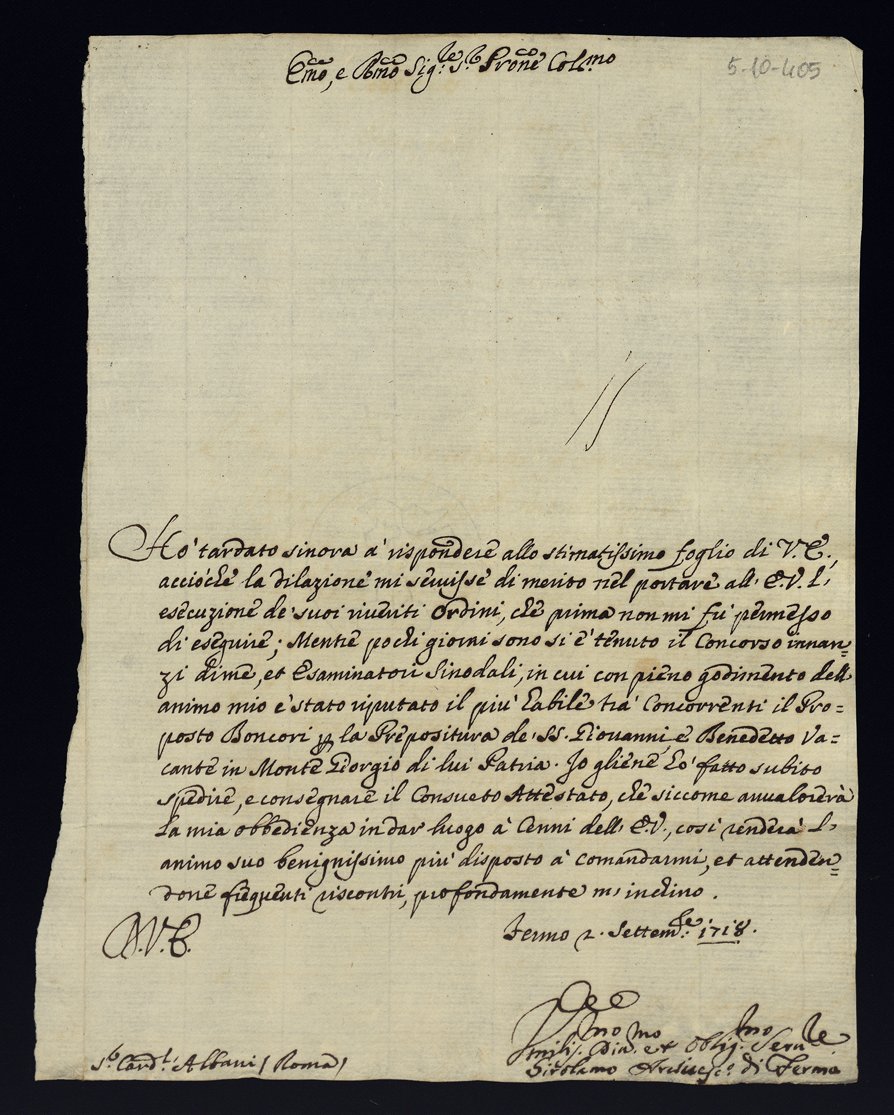 5-10-405
Emo, e Rmo Sig.re S.r Prone Col.mo
Hò tardato sinora a' rispondere allo stimatissimo foglio di V.E.,
acciò che la dilazione mi seruisse di merito nel portare all' E.V. l'
esecuzione de' suoi riueriti Ordini, che prima non mi fù permesso
di eseguire; Mentre pochi giorni sono si è tenuto il Concorso innan=
zi di me, et Esaminatori Sinodali, in cui con pieno godimento dell'
animo mio è stato riputato il più habile trà Concorrenti il Pro=
posto Boncori p la Prepositura de' SS. Giouanni, e Benedetto Va=
cante in Monte Giorgio di lui Patria. Io gliene hò fatto subito
spedire, e consegnare il Consueto Attestato, che siccome auualorerà
la mia obbedienza in dar luogo à Cenni dell' E.V., così renderà l'
animo suo benignissimo più disposto à comandarmi, et attenden=
done frequenti riscontri, profondamente m' inchino.
D.V.E.
Fermo 2. Settem.re 1718.
Vmiliss.mo Diu.mo et Oblig.mo Seru.re
Girolamo Arciuesc.o di Fermo
S.r Card.l Albani / Roma /